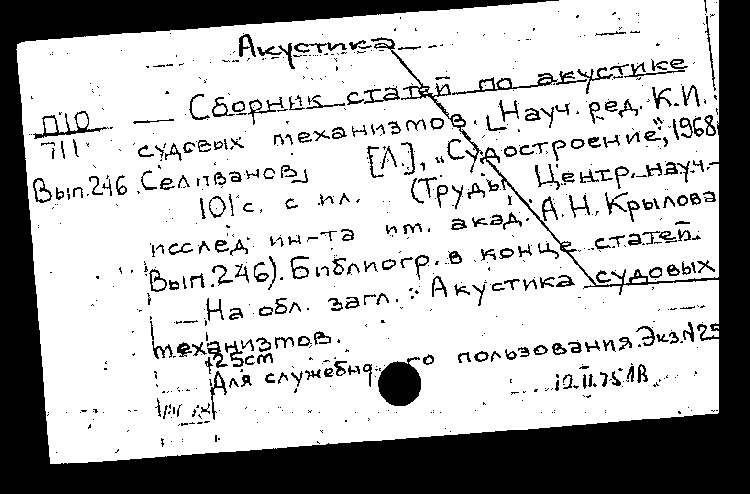 Акустика
П10 — Сборник статей по акустике
711 судовых механизмов. [Науч. ред. К.И.
Вып.246 Селиванов] [Л.], „Судостроение", 1968
101 с. с ил. (Труды Центр. науч.-
исслед ин-та им. акад. А.Н. Крылова
Вып.246). Библиогр. в конце статей.
— На обл. загл.: Акустика судовых
механизмов.
25cm
Для служебно го пользования. Экз. N25